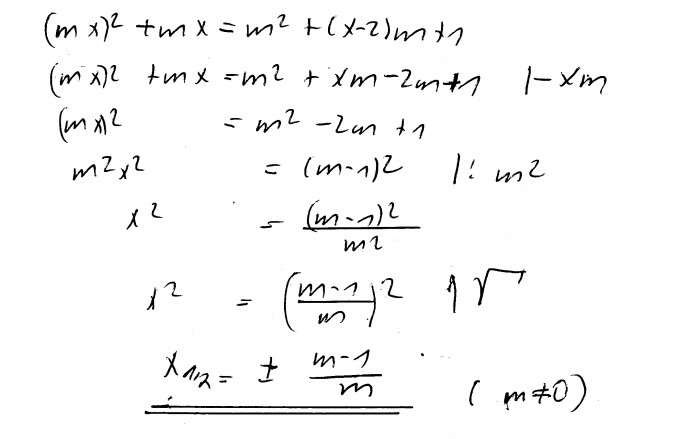 (m x)² + m x = m² + (x-2)m + 1
(m x)² + m x = m² + xm - 2m + 1 | - xm
(m x)² = m² - 2m + 1
m² x² = (m-1)² | : m²
x² = (m-1)² / m²
x² = ((m-1)/m)² | √
x₁/₂ = ± (m-1)/m (m ≠ 0)